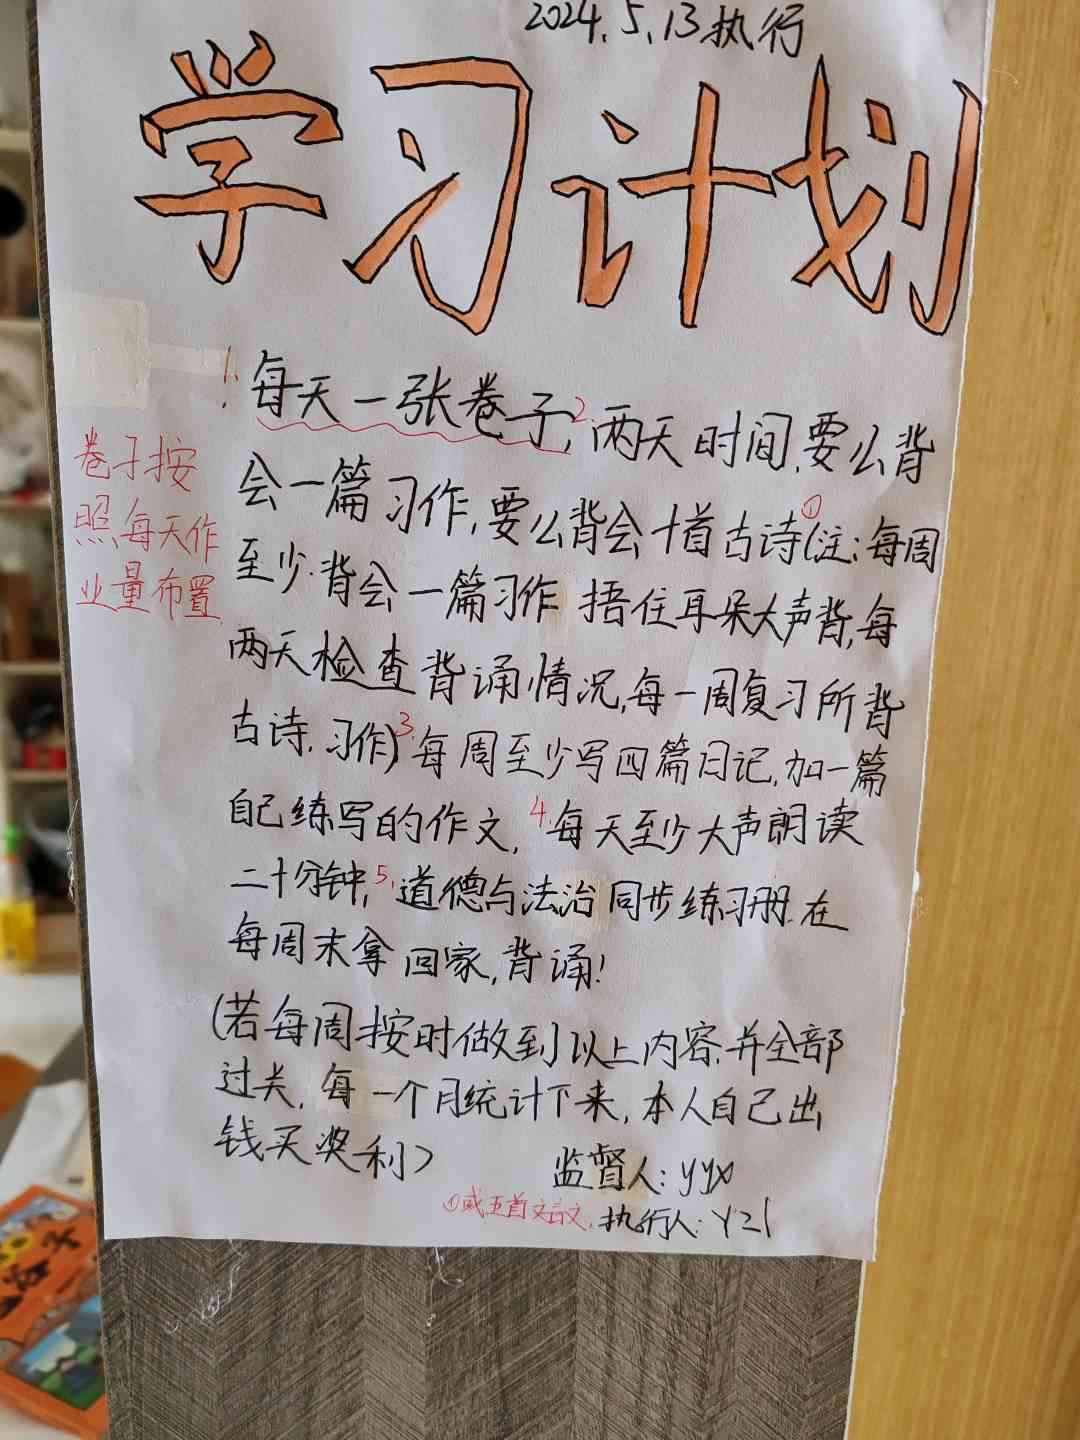 2024.5.13执行
学习计划
1.每天一张卷子,2.两天时间,要么背
会一篇习作,要么背会十首古诗①(注:每周
至少背会一篇习作 捂住耳朵大声背,每
两天检查背诵情况,每一周复习所背
古诗.习作)3.每周至少写四篇日记,加一篇
自己练写的作文,4.每天至少大声朗读
二十分钟,5.道德与法治同步练习册.在
每周末拿回家,背诵!
(若每周按时做到以上内容.并全部
过关,每一个月统计下来,本人自己出
钱买奖利)
监督人:yyx
①或五首文言文.执行人:yzl
卷子按
照每天作
业量布置